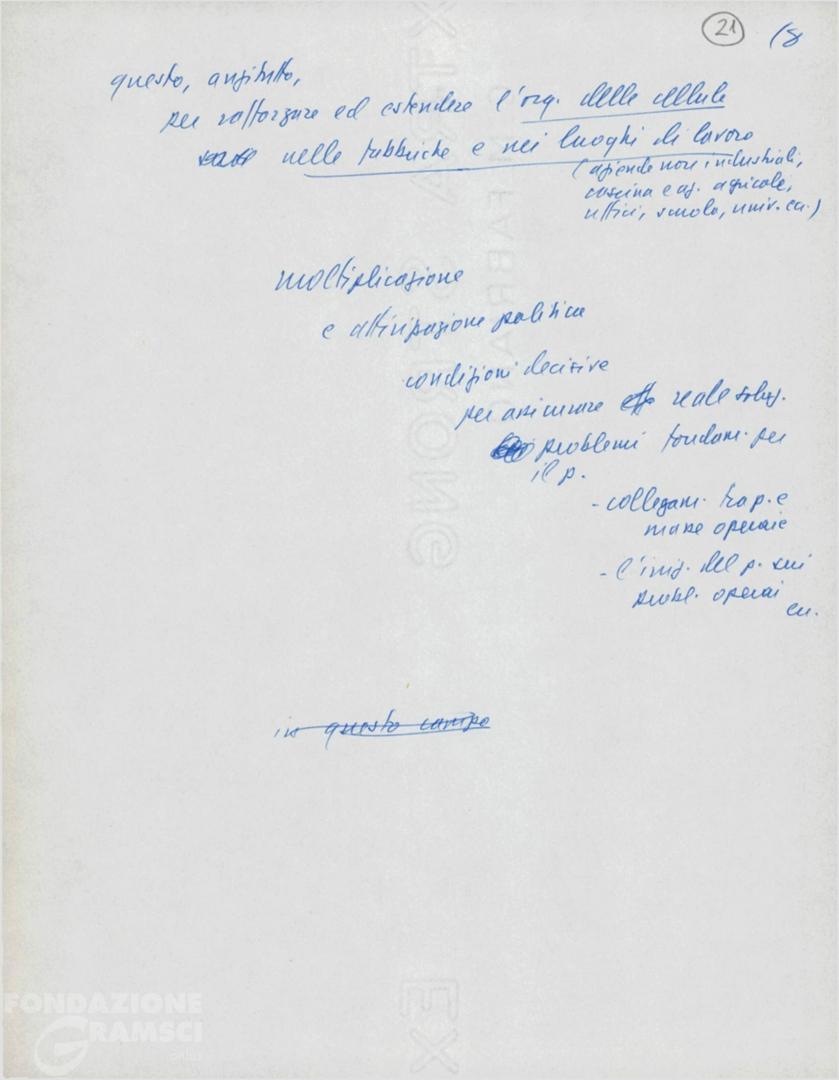 21 18
questo, anzitutto,
per rafforzare ed estendere l'org. delle cellule
nelle fabbriche e nei luoghi di lavoro
(aziende non industriali,
cascina e az. agricole,
uffici, scuola, univ. ecc.)
moltiplicazione
e attivizzazione politica
condizioni decisive
per assicurare reale soluz.
problemi fondam. per
il p.
- collegam. tra p. e
masse operaie
- l'imp. del p. sui
probl. operai
ecc.
in questo campo
FONDAZIONE
GRAMSCI